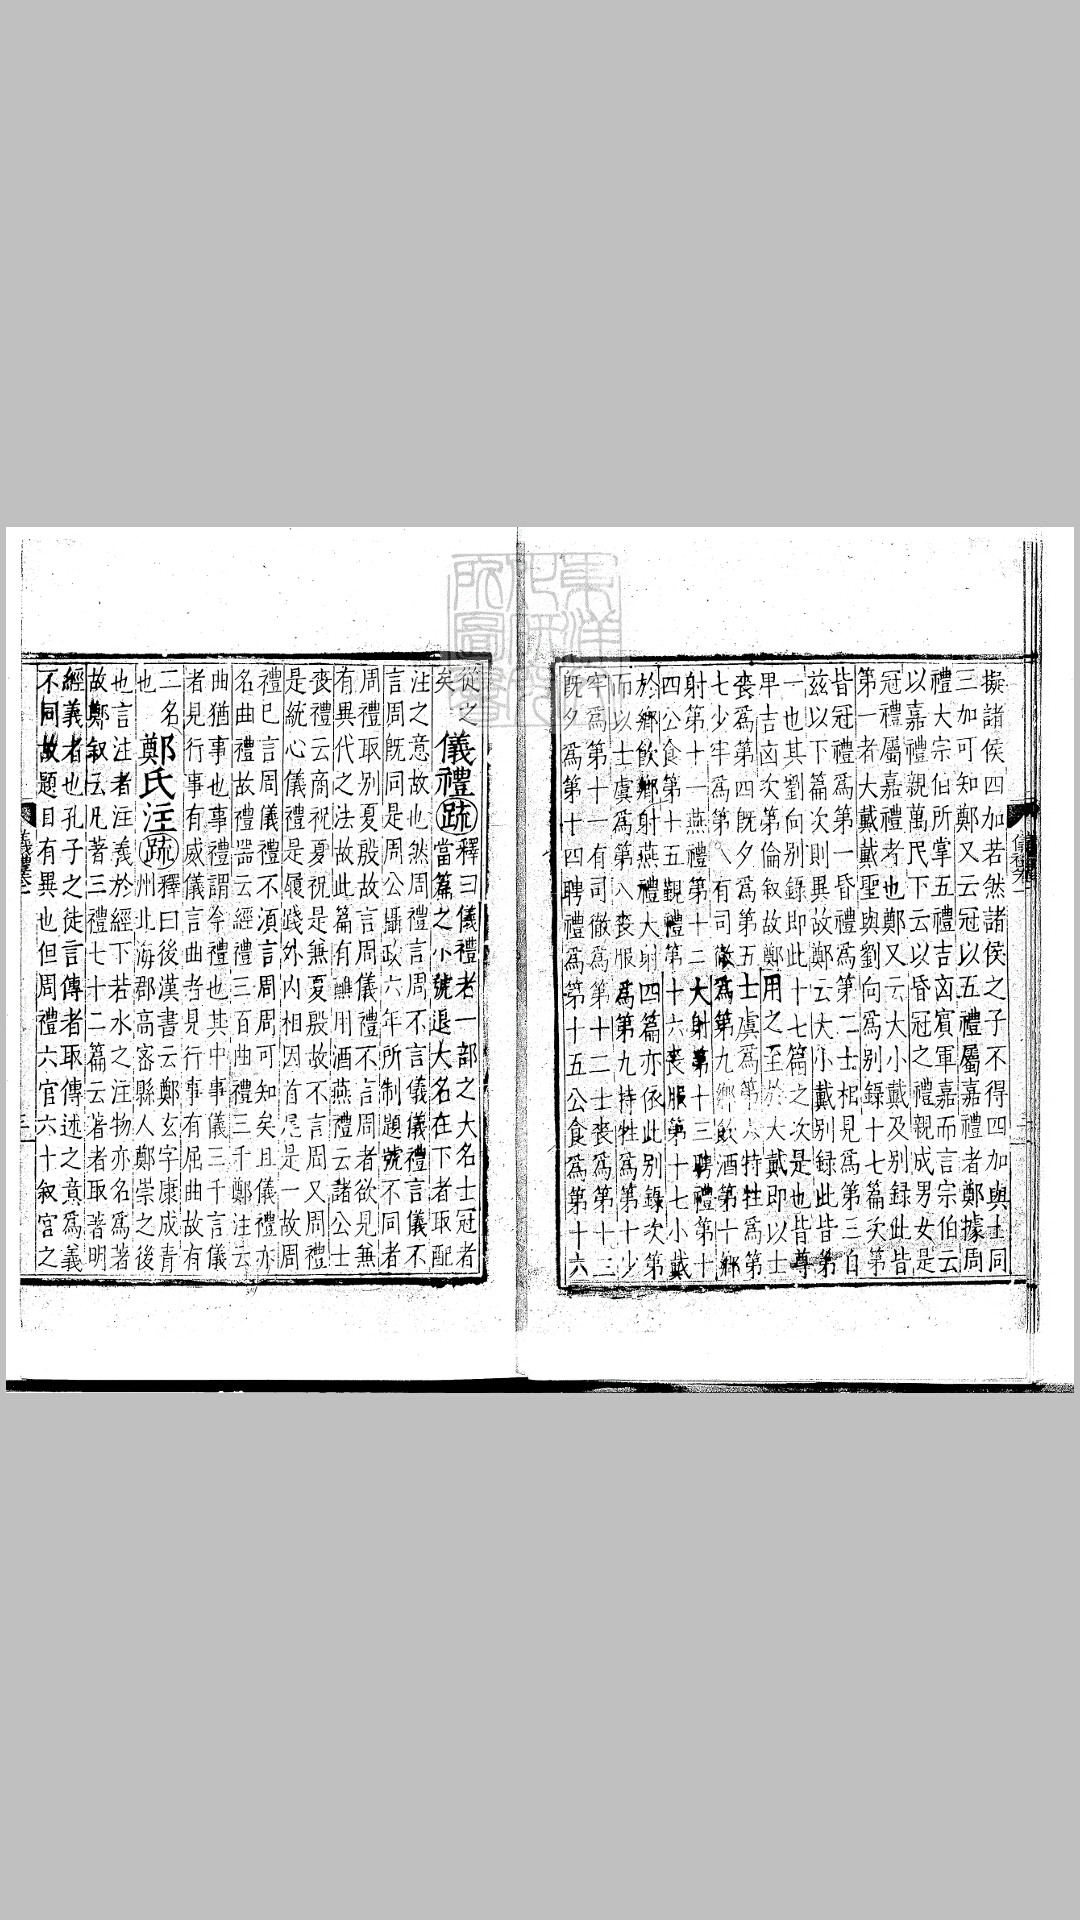 擬諸侯四加若然諸侯之子不得四加與士同
三加可知鄭又云冠以五禮屬嘉禮者鄭據周
禮大宗伯所掌五禮吉凶賓軍嘉而言宗伯云
以嘉禮親萬民下云以昏冠之禮親成男女是
冠禮屬嘉禮者也鄭又云大小戴及別録此皆
第一者大戴戴聖與劉向爲別録十七篇次第
皆冠禮爲第一昏禮爲第二士相見爲第三自
茲以下篇次則異故鄭云大小戴別録此皆第
一也其劉向別録即此十七篇之次是也皆尊
卑吉凶次第倫叙故鄭用之至於大戴即以士
喪爲第四既夕爲第五士虞爲第六特牲爲第
七少牢爲第八有司徹爲第九鄉飲酒第十鄉
射第十一燕禮第十二大射第十三聘禮第十
四公食第十五覲禮第十六喪服第十七小戴
於鄉飲鄉射燕禮大射四篇亦依此別錄次第
而以士虞爲第八喪服爲第九特牲爲第十少
牢爲第十一有司徹爲第十二士喪爲第十三
既夕爲第十四聘禮爲第十五公食爲第十六
從之
矣
儀禮疏
釋曰儀禮者一部之大名士冠者
當篇之小號退大名在下者取配
注之意故也然周禮言周不言儀儀禮言儀不
言周既同是周公攝政六年所制題號不同者
周禮取別夏殷故言周儀禮不言周者欲見兼
有異代之法故此篇有醮用酒燕禮云諸公士
喪禮云商祝夏祝是兼夏殷故不言周又周禮
是統心儀禮是履踐外内相因首尾是一故周
禮已言周儀禮不須言周周可知矣且儀禮亦
名曲禮故禮器云經禮三百曲禮三千鄭注云
曲猶事也事禮謂今禮也其中事儀三千言儀
者見行事有威儀言曲者見行事有屈曲故有
二名
也
鄭氏注疏
釋曰後漢書云鄭玄字康成青
州北海郡高密縣人鄭崇之後
也言注者注義於經下若水之注物亦名爲著
故鄭叙云凡著三禮七十二篇云著者取著明
經義者也孔子之徒言傳者取傳述之意爲義
不同故題目有異也但周禮六官六十叙官之